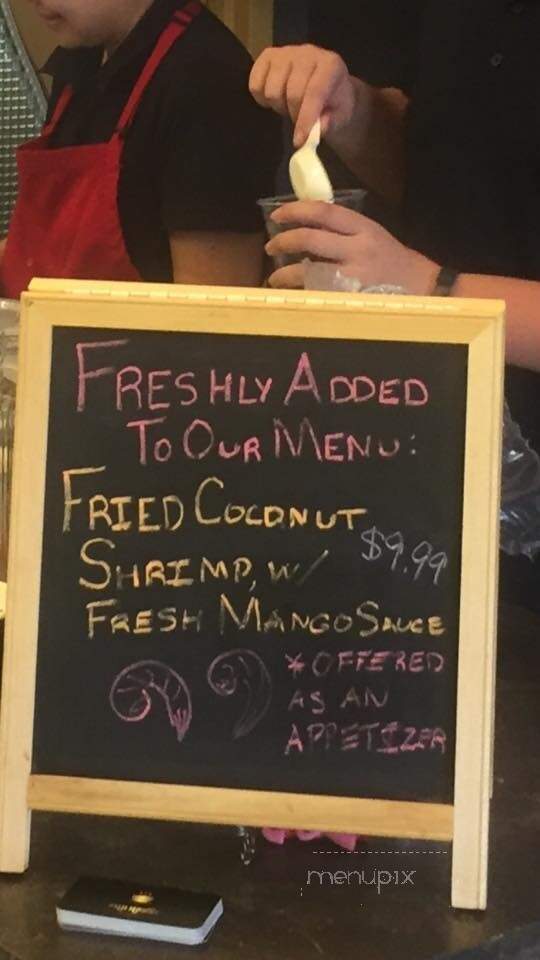 FRESHLY ADDED
TO OUR MENU:
FRIED COCONUT
$9.99
SHRIMP, W/
FRESH MANGO SAUCE
*OFFERED
AS AN
APPETIZER
menupix